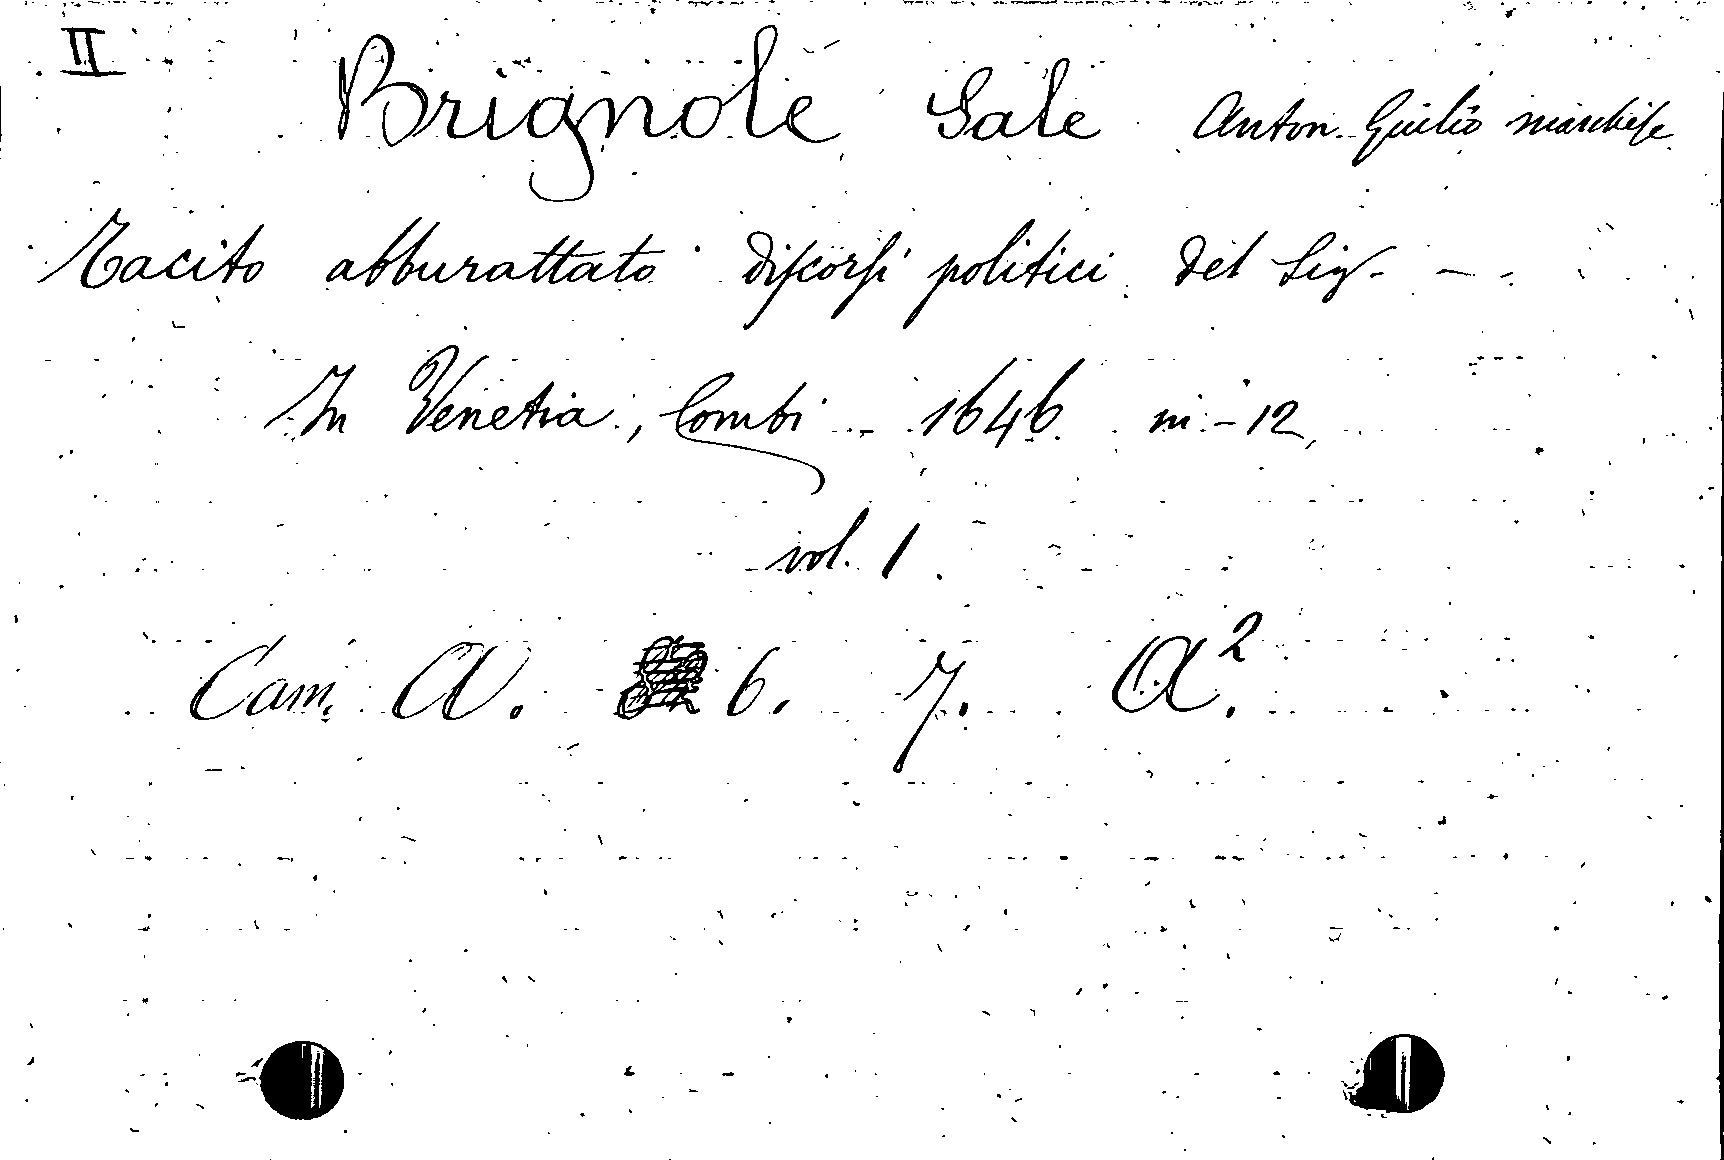 II
Brignole Sale Anton. Giulio marchese
Tacito abburattato discorsi politici del Sig. – .
In Venetia, Combi 1646 in-12
vol. 1.
Cam. A. 6. 7. A².